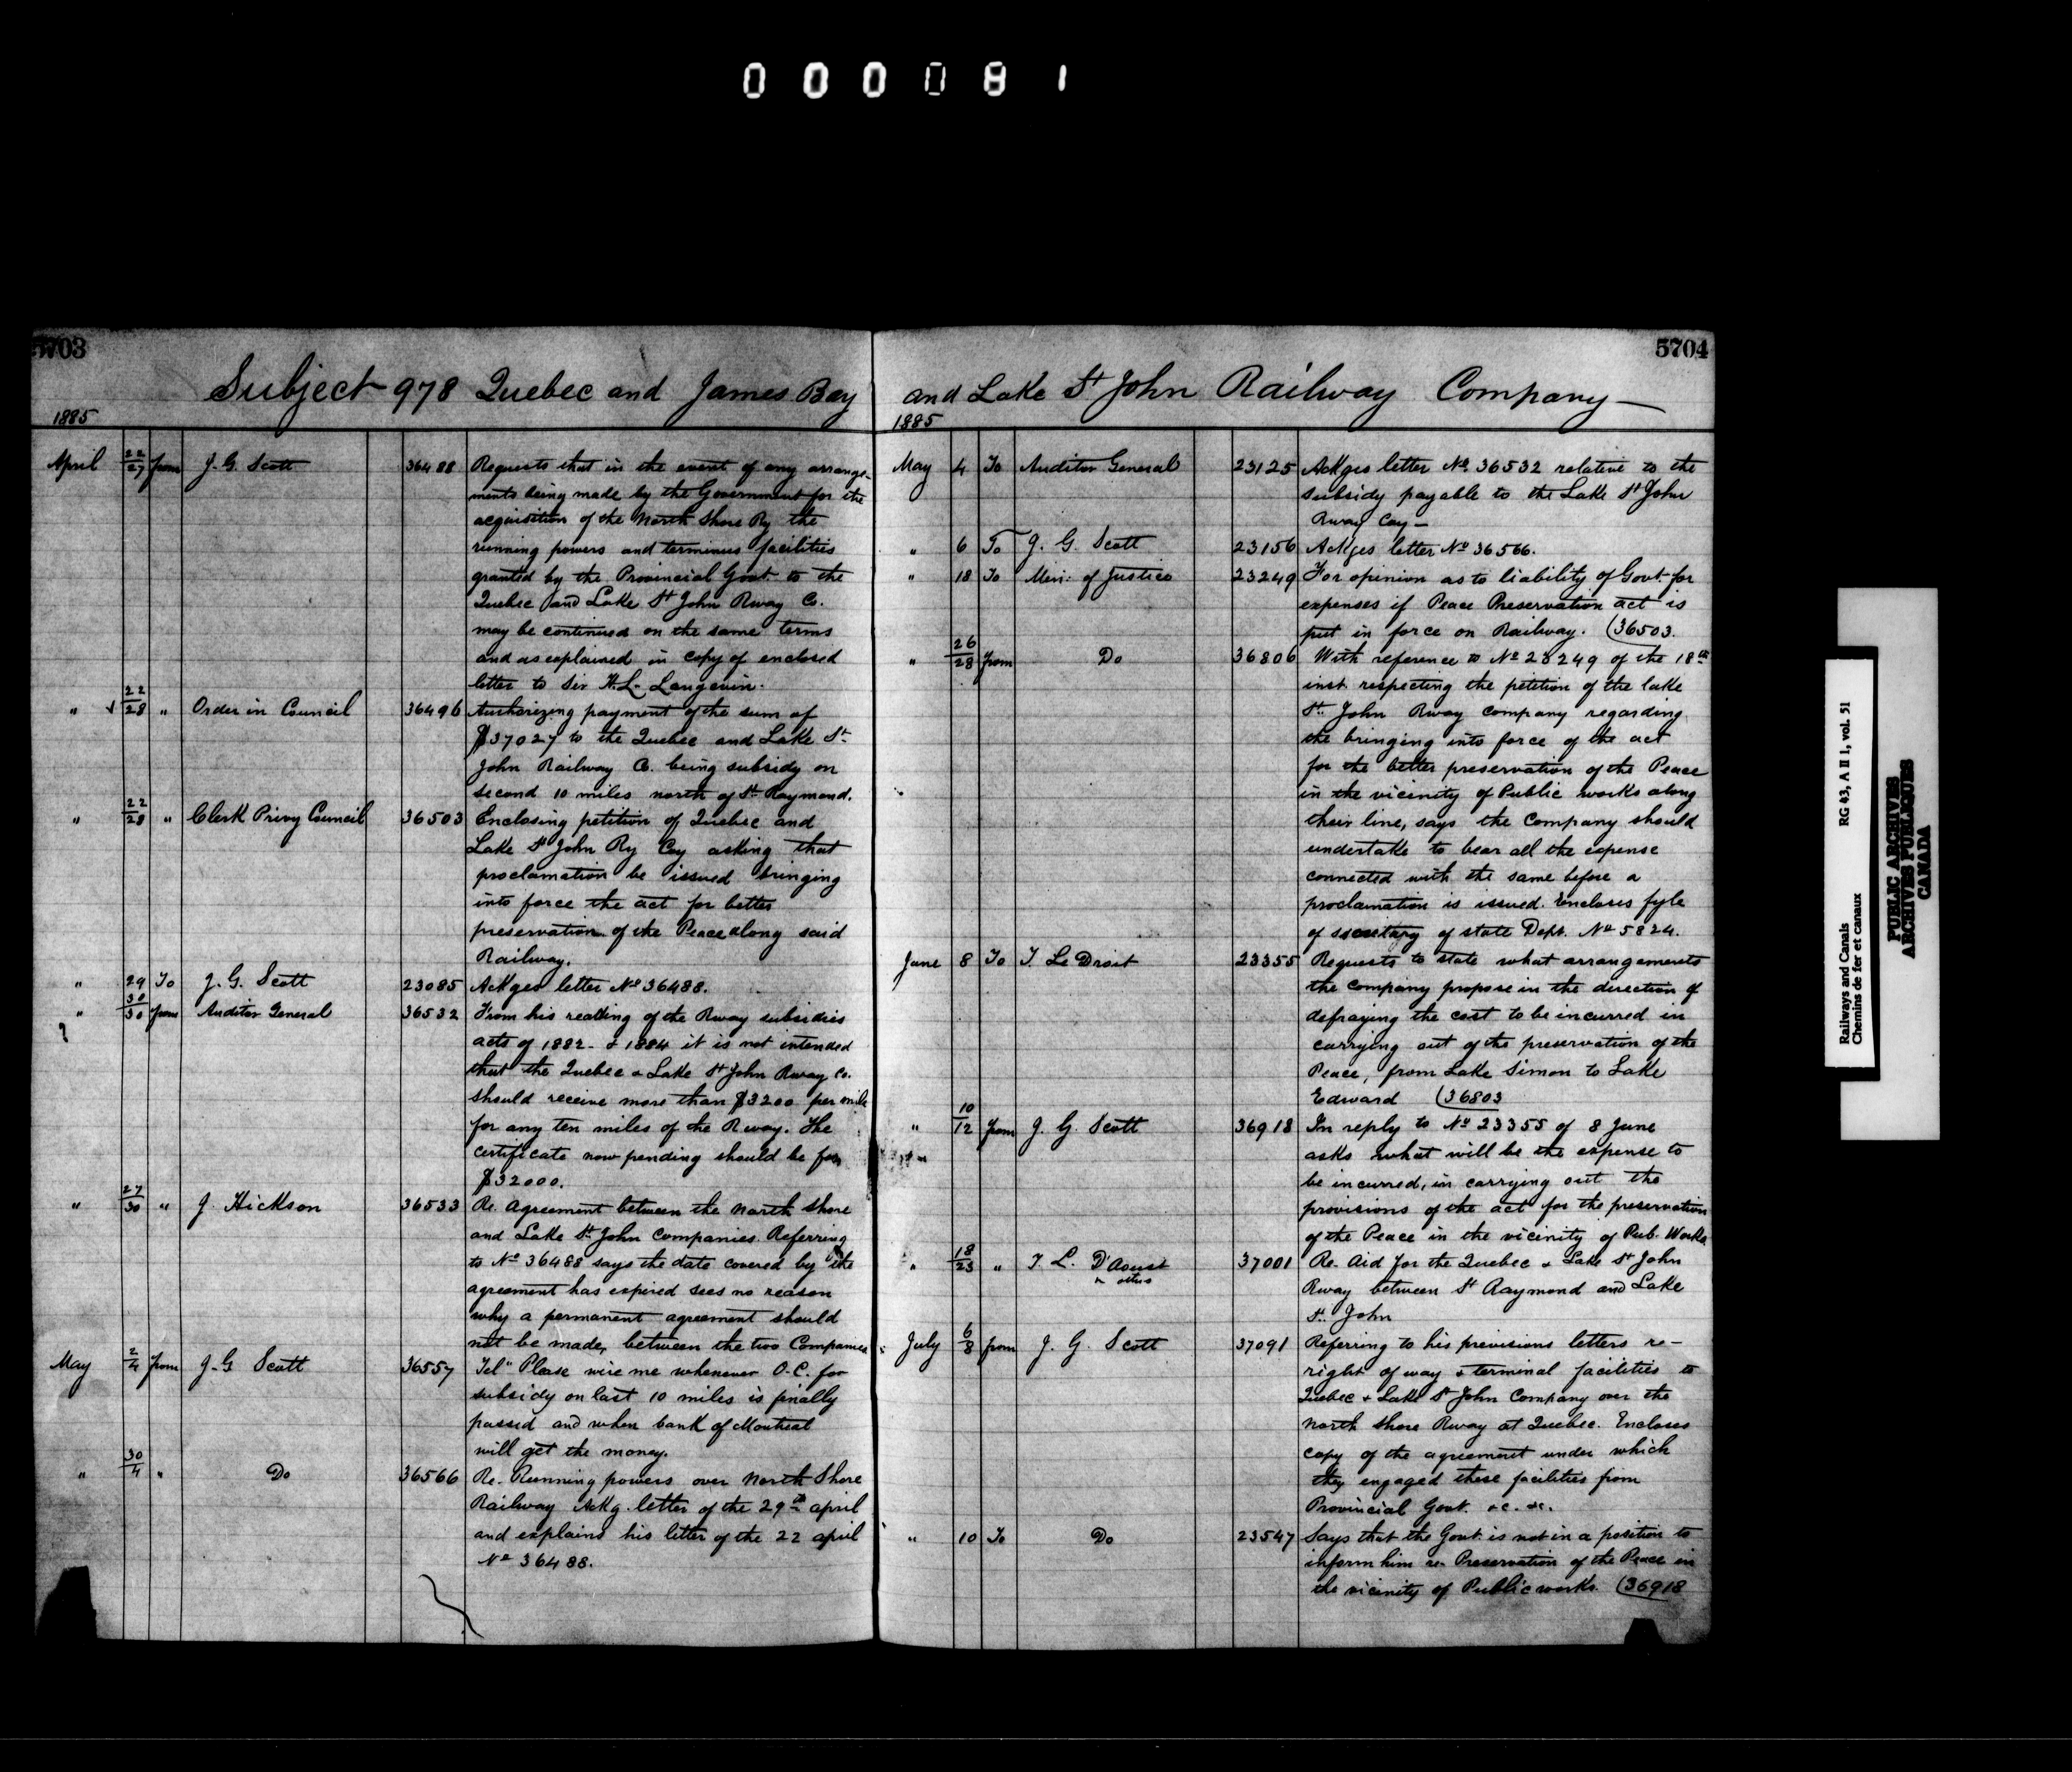 000081
5703
Subject 978 Quebec and James Bay
1885
April 22/27 from J. G. Scott 36488 Requests that in the event of any arrange-
ments being made by the Government for the
acquisition of the North Shore Ry the
running powers and terminus facilities
granted by the Provincial Govt to the
Quebec and Lake St John Rway Co.
may be continued on the same terms
and as explained in copy of enclosed
letter to Sir H. L. Langevin.
" 22/28 " Order in Council 36496 Authorizing payment of the sum of
$37027 to the Quebec and Lake St
John Railway Co. being subsidy on
second 10 miles north of St Raymond.
" 22/28 " Clerk Privy Council 36503 Enclosing petition of Quebec and
Lake St John Ry Coy asking that
proclamation be issued bringing
into force the act for better
preservation of the Peace along said
Railway.
" 29 To J. G. Scott 23085 Ackges letter No 36488.
" 30/30 from Auditor General 36532 From his reading of the Rway subsidies
acts of 1882 - & 1884 it is not intended
that the Quebec & Lake St John Rway Co.
should receive more than $3200 per mile
for any ten miles of the Rway. The
certificate now pending should be for
$32000.
" 27/30 " J. Hickson 36533 Re. Agreement between the North Shore
and Lake St John Companies. Referring
to No 36488 says the date covered by the
agreement has expired sees no reason
why a permanent agreement should
not be made, between the two Companies
May 2/4 from J. G Scott 36557 Tel" Please wire me whenever O.C. for
subsidy on last 10 miles is finally
passed and when bank of Montreal
will get the money.
" 30/4 " Do 36566 Re. Running powers over North Shore
Railway Ackg. letter of the 29th april
and explains his letter of the 22 april
No 36488.
5704
and Lake St John Railway Company
1885
May 4 To Auditor General 23125 Ackges letter No 36532 relative to the
subsidy payable to the Lake St John
Rway Coy -
" 6 To J. G. Scott 23156 Ackges letter No 36566.
" 18 To Min: of Justice 23249 For opinion as to liability of Govt. for
expenses if Peace Preservation act is
put in force on Railway. (36503.
" 26/28 from Do 36806 With reference to No 23249 of the 18th
inst respecting the petition of the lake
St. John Rway Company regarding
the bringing into force of the act
for the better preservation of the Peace
in the vicinity of Public works along
their line, says the Company should
undertake to bear all the expense
connected with the same before a
proclamation is issued. Encloses fyle
of secretary of state Dept. No 5824.
June 8 To T. Le Droit 23355 Requests to state what arrangements
the Company propose in the direction of
defraying the cost to be incurred in
carrying out of the preservation of the
Peace, from Lake Simon to Lake
Edward (36803
" 10/12 from J. G. Scott 36918 In reply to No 23355 of 8 June
asks what will be the expense to
be incurred, in carrying out the
provisions of the act for the preservation
of the Peace in the vicinity of Pub. Works.
" 18/23 " T. L. D'Aoust
& others 37001 Re. Aid for the Quebec & Lake St John
Rway between St Raymond and Lake
St. John
July 6/8 from J. G. Scott 37091 Referring to his previous letters re -
right of way & terminal facilities to
Quebec & Lake St John Company over the
North Shore Rway at Quebec. Encloses
copy of the agreement under which
they engaged these facilities from
Provincial Govt. &c. &c.
" 10 To Do 23547 Says that the Govt. is not in a position to
inform him re Preservation of the Peace in
the vicinity of Public works. (36918
Railways and Canals RG 43, A II 1, vol. 51
Chemins de fer et canaux
PUBLIC ARCHIVES
ARCHIVES PUBLIQUES
CANADA